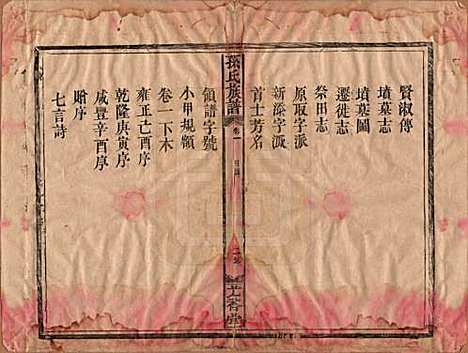 賢淑傳
墳墓志
墳墓圖
遷徙志
祭田志
原取字派
新添字派
首士芳名
孫氏族譜
卷一
目錄
領譜字號
小甲規額
卷一下木
雍正乙酉序
乾隆庚寅序
咸豐辛酉序
贈序
七言詩